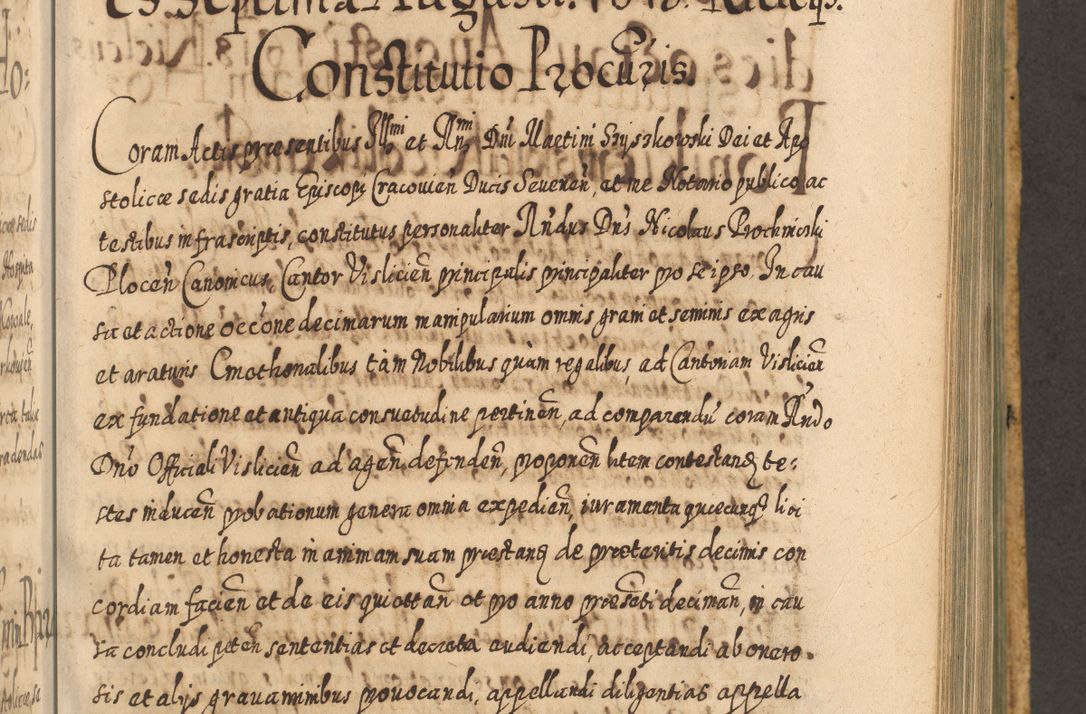 es septima Augusti. 1618.
Constitutio Procuris.
Coram Actis præsentibus Illmi et Rnmi Dni Martini Szyszkowski Dei et Apo
stolicæ sedis gratia Episcopi Cracovien Ducis Severien, et me Notario publico, ac
testibus infrascriptis, constitutus personaliter Rndus Dns Nicolaus Prochnicki
Plocen Canonicus, Cantor Vislicien principalis principaliter pro se ipso. In cau
sa et actione occone decimarum manipularium omnis grani et seminis ex agris
et araturis Cmethonalibus tàm Nobilibus quàm regalibus, ad Cantoriam Vislicien
ex fundatione et antiqua consuetudine pertinen, ad comparendu coram Rndo
Dno Officiali Vislicien ad agen defenden, proponen litem contestand te-
stes inducen probationum genera omnia expedien, iuramenta quæcunq lici
ta tamen et honesta in animam suam præstand de præteritis decimis con
cordiam facien et de eis quiottan et pro anno præsenti deciman, in cau
sa concludi peten sententias et decreta audiendi, acceptandi ab onero-
sis et alijs gravaminibus provocandi, appellandi diligentias appella